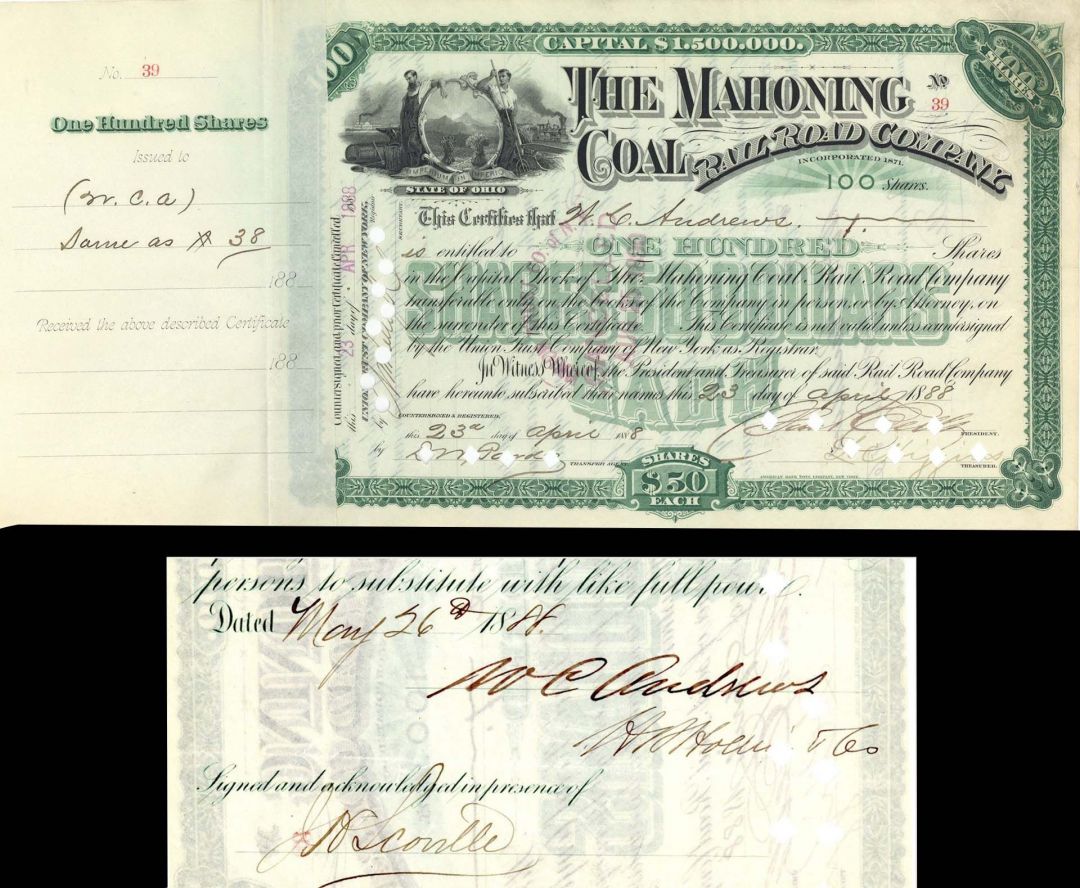 No. 39
One Hundred Shares
Issued to
(W. C. A)
Same as # 38
188
Received the above described Certificate
188
100
CAPITAL $1.500.000.
100 SHARES
THE MAHONING
COAL RAIL ROAD COMPANY
No 39
INCORPORATED 1871.
100 Shares.
IMPERIUM IN IMPERIO
STATE OF OHIO
Countersigned and prior Certificate Cancelled
this 23 day of APR 1888
UNION TRUST COMPANY OF NEW YORK,
by
Registrar
SECRETARY.
This Certifies that W. C. Andrews.
is entitled to ONE HUNDRED Shares
in the Capital Stock of The Mahoning Coal Rail Road Company
transferable only on the books of the Company in person, or by Attorney, on
the surrender of this Certificate. This Certificate is not valid unless countersigned
by the Union Trust Company of New York as Registrar.
SHARES 50 DOLLARS
EACH
In Witness Whereof, the President and Treasurer of said Rail Road Company
have hereunto subscribed their names this 23 day of April 1888
COUNTERSIGNED & REGISTERED,
this 23d day of April 1888
by
TRANSFER AGENT.
PRESIDENT.
TREASURER.
SHARES
$50
EACH
AMERICAN BANK NOTE COMPANY, NEW YORK.
persons to substitute with like full power.
Dated May 26th 1888.
W C Andrews
Signed and acknowledged in presence of
J H Scoville